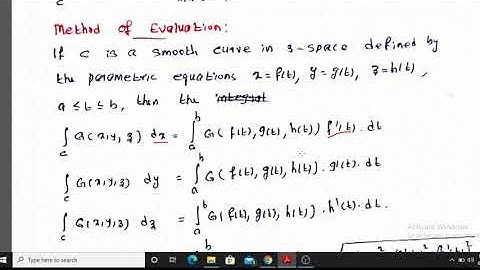 Method of Evaluation:
If C is a smooth curve in 3-space defined by
the parametric equations x = f(t), y = g(t), z = h(t),
a ≤ t ≤ b, then the integral
∫_C G(x,y,z) dx = ∫_a^b G(f(t), g(t), h(t)) f'(t). dt
∫_C G(x,y,z) dy = ∫_a^b G(f(t), g(t), h(t)). g'(t). dt
∫_C G(x,y,z) dz = ∫_a^b G(f(t), g(t), h(t)). h'(t). dt.
b
Activate Windows
Type here to search